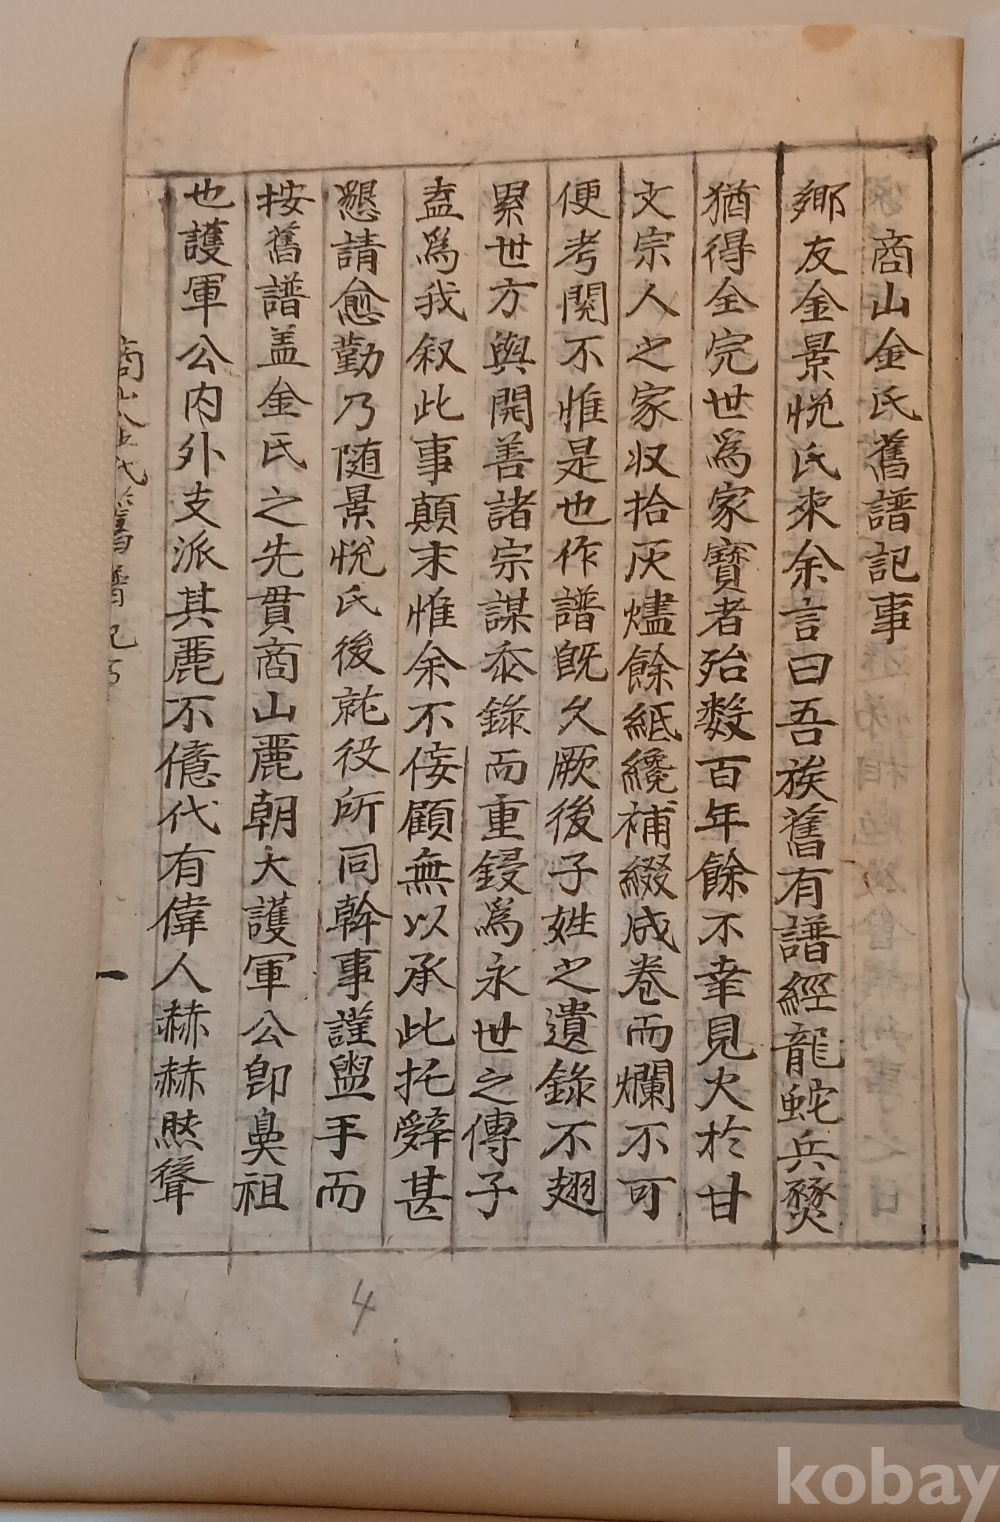 商山金氏舊譜記事
鄉友金景悅氏來余言曰吾族舊有譜經龍蛇兵燹
猶得全完世爲家寶者殆數百年餘不幸見火於甘
文宗人之家収拾灰燼餘紙纔補綴成卷而爛不可
便考閱不惟是也作譜旣久厥後子姓之遺錄不翅
累世方與開善諸宗謀忝錄而重鋟爲永世之傳子
盍爲我叙此事顛末惟余不侫顧無以承此托辭甚
懇請愈勤乃随景悅氏後䟱役所同幹事謹盥手而
按舊譜盖金氏之先貫商山麗朝大護軍公卽鼻祖
也護軍公内外支派其麗不億代有偉人赫赫熈聲
商山金氏舊譜記
4
kobay